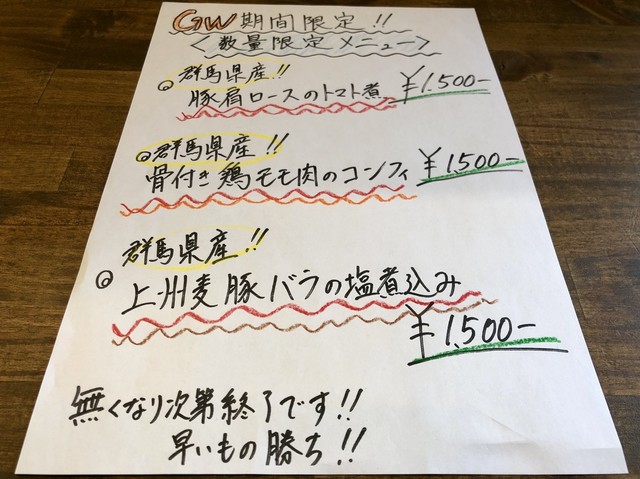 GW期間限定!!
<数量限定メニュー>
群馬県産!!
。豚肩ロースのトマト煮 ¥1.500-
。群馬県産!!
骨付き鶏モモ肉のコンフィ ¥1.500-
群馬県産!!
。上州麦豚バラの塩煮込み
¥1.500-
無くなり次第終了です!!
早いもの勝ち!!